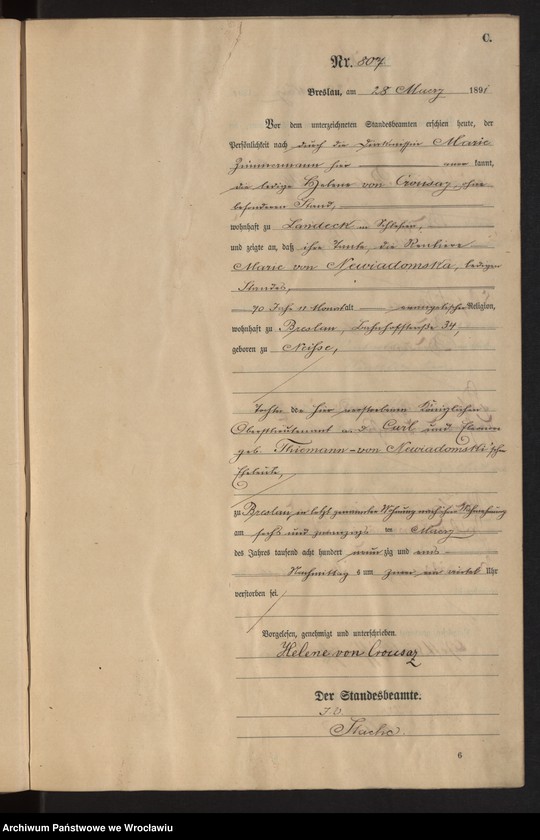 C.
Nr. 807
Breslau, am 28 Maerz 1891
Vor dem unterzeichneten Standesbeamten erschien heute, der
Persönlichkeit nach durch die Marie
Zimmermann hier kannt,
die ledige Helene von Crousaz, ohne
besonderen Stand,
wohnhaft zu Landeck in Schlesien,
und zeigte an, daß ihre Tante, die Rentiere
Marie von Newiadomska, ledigen
Standes,
70 Jahr 11 Monat alt evangelischer Religion,
wohnhaft zu Breslau, Bahnhofstraße 34,
geboren zu Neisse,
Tochter des hier verstorbenen Königlichen
Oberstlieutenant a. D. Carl und
geb. Thiemann-von Newiadomski'schen
Eheleute,
zu Breslau, in letzt genannter Wohnung
am sechs und zwanzigsten Maerz
des Jahres tausend acht hundert neun zig und eins
Nachmittags um zwei, ein viertel Uhr
verstorben sei.
Vorgelesen, genehmigt und unterschrieben.
Helene von Crousaz
Der Standesbeamte.
I.V.
6
Archiwum Państwowe we Wrocławiu